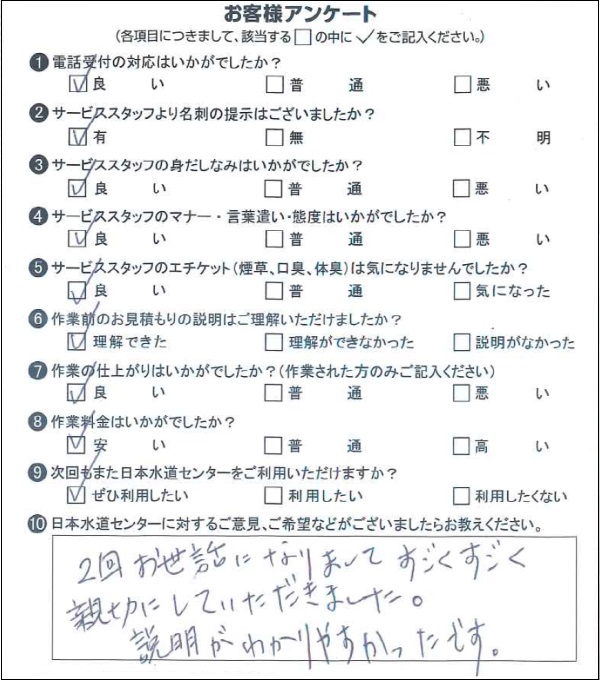 お客様アンケート
(各項目につきまして、該当する□の中に✓をご記入ください。)
❶電話受付の対応はいかがでしたか?
☑良い □普通 □悪い
❷サービススタッフより名刺の提示はございましたか?
☑有 □無 □不明
❸サービススタッフの身だしなみはいかがでしたか?
☑良い □普通 □悪い
❹サービススタッフのマナー・言葉遣い・態度はいかがでしたか?
☑良い □普通 □悪い
❺サービススタッフのエチケット(煙草、口臭、体臭)は気になりませんでしたか?
☑良い □普通 □気になった
❻作業前のお見積もりの説明はご理解いただけましたか?
☑理解できた □理解ができなかった □説明がなかった
❼作業の仕上がりはいかがでしたか?(作業された方のみご記入ください)
☑良い □普通 □悪い
❽作業料金はいかがでしたか?
☑安い □普通 □高い
❾次回もまた日本水道センターをご利用いただけますか?
☑ぜひ利用したい □利用したい □利用したくない
❿日本水道センターに対するご意見、ご希望などがございましたらお教えください。
2回お世話になりましてすごくすごく
親切にしていただきました。
説明がわかりやすかったです。